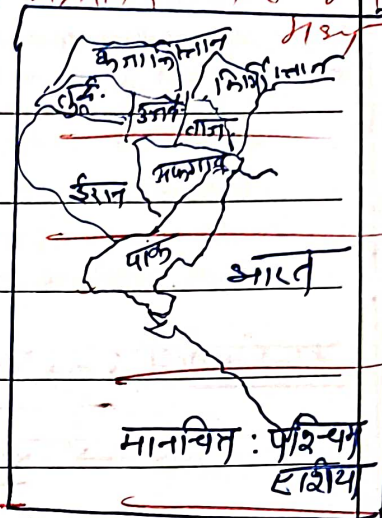 मध्य
कजाकिस्तान
किर्गिस्तान
तुर्क.
उज्बे.
ताज.
अफगान
ईरान
पाक
भारत
मानचित्र : पश्चिम
एशिया